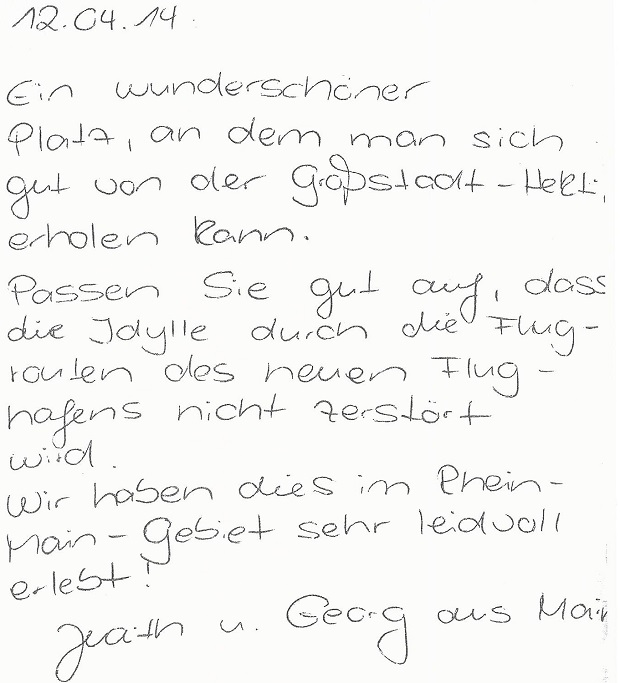 12.04.14
Ein wunderschöner
Platz, an dem man sich
gut von der Großstadt-Hekti
erholen kann.
Passen Sie gut auf, dass
die Idylle durch die Flug-
routen des neuen Flug-
hafens nicht zerstört
wird.
Wir haben dies im Rhein-
Main-Gebiet sehr leidvoll
erlebt!
u. Georg aus Main